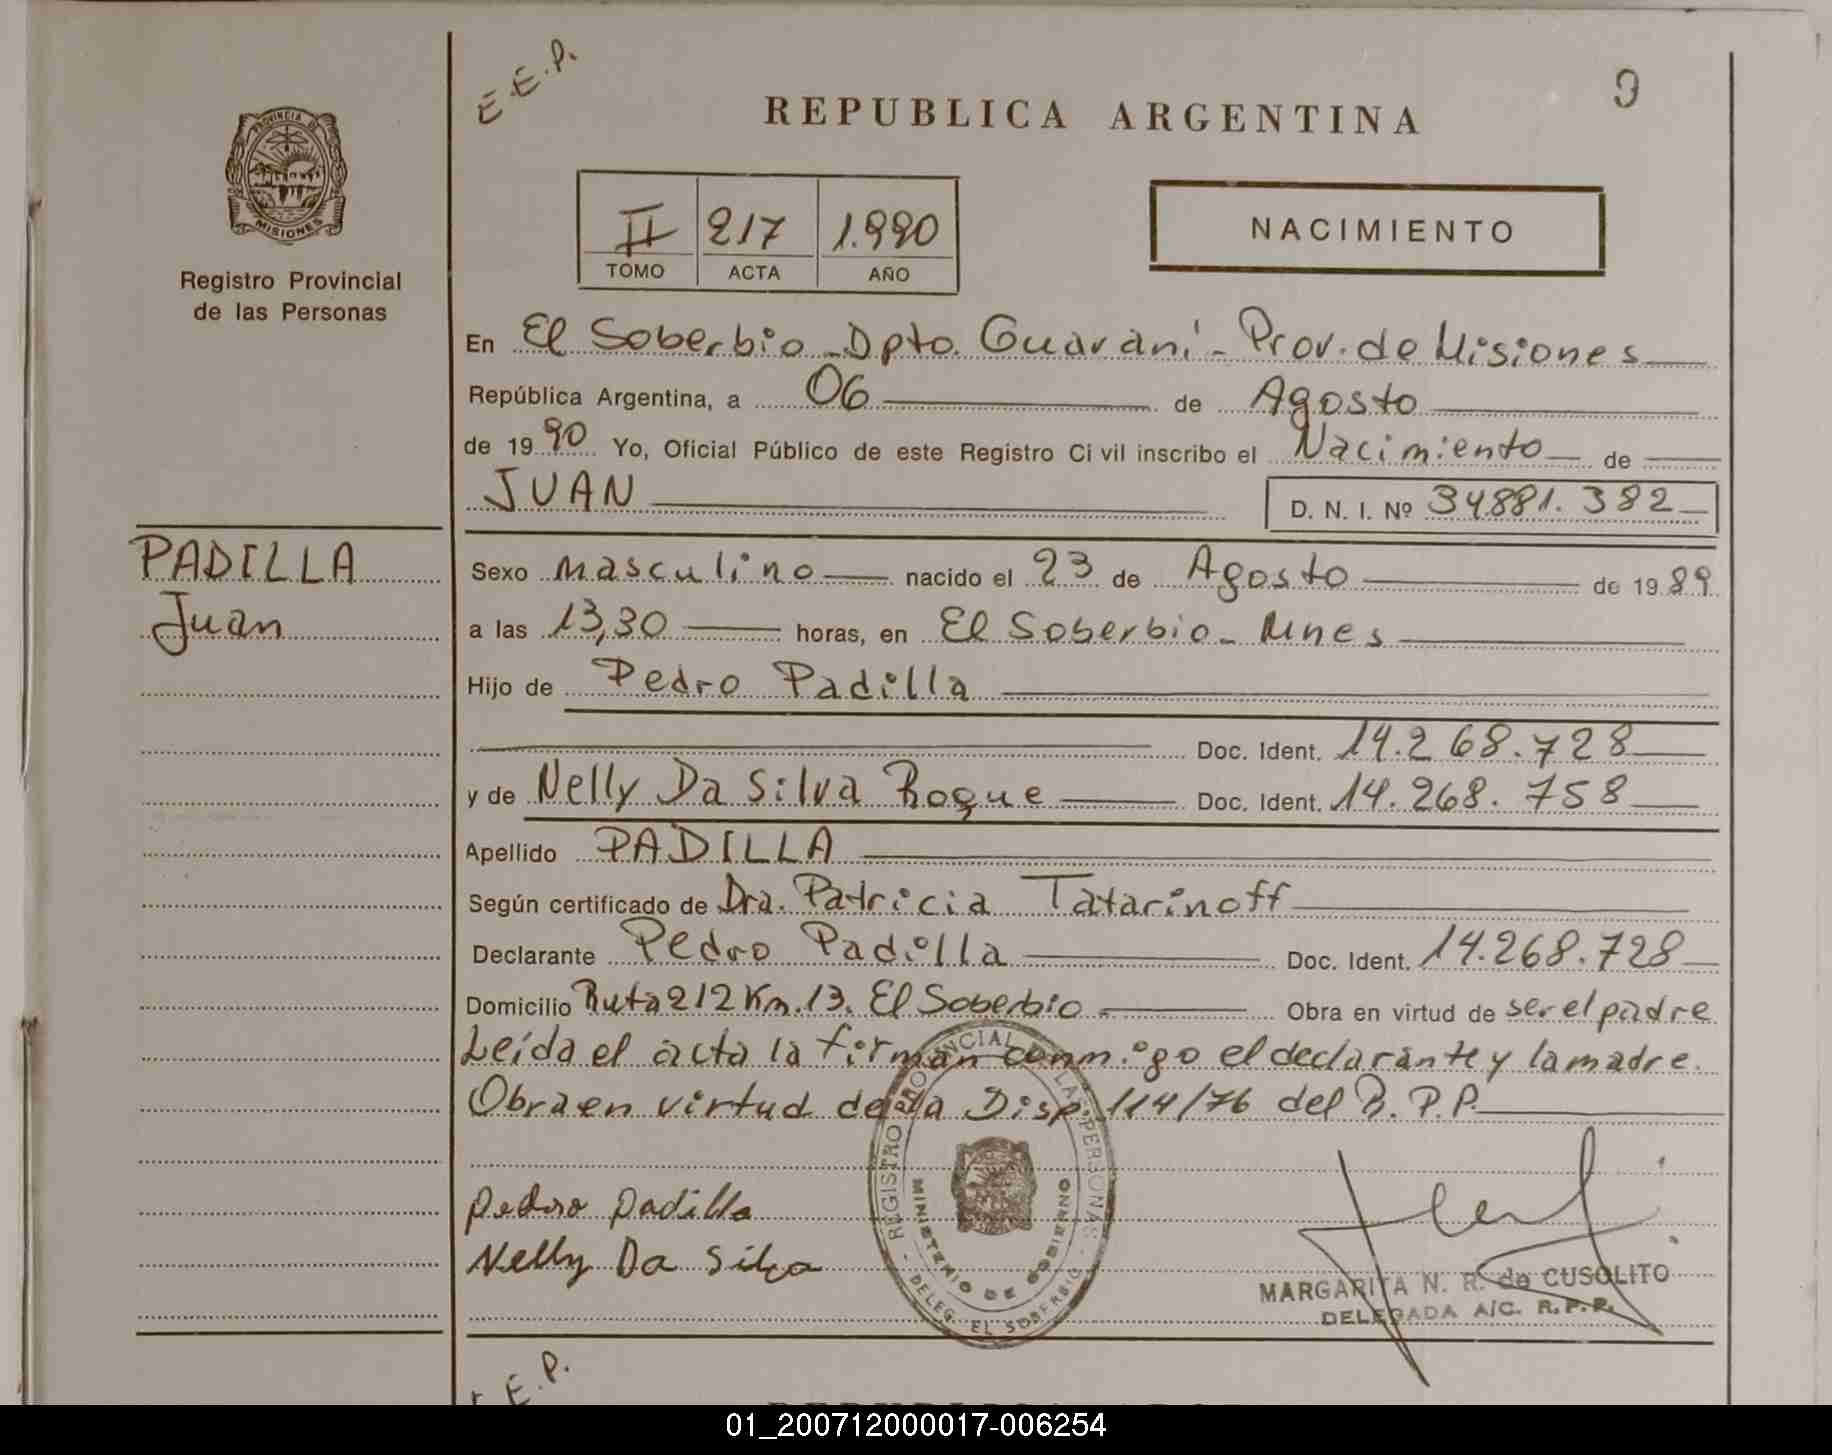 E.E.P.
9
REPUBLICA ARGENTINA
PROVINCIA DE
MISIONES
Registro Provincial
de las Personas
II 217 1.990
TOMO ACTA AÑO
NACIMIENTO
En El Soberbio - Dpto. Guaraní - Prov. de Misiones
República Argentina, a 06 de Agosto
de 1990 Yo, Oficial Público de este Registro Civil inscribo el Nacimiento de
JUAN D. N. I. Nº 34881.382
PADILLA
Juan
Sexo masculino nacido el 23 de Agosto de 1989
a las 13,30 horas, en El Soberbio - Mnes
Hijo de Pedro Padilla
Doc. Ident. 14.268.728
y de Nelly Da Silva Roque Doc. Ident. 14.268.758
Apellido PADILLA
Según certificado de Dra. Patricia Tatarinoff
Declarante Pedro Padilla Doc. Ident. 14.268.728
Domicilio Ruta 212 Km. 13. El Soberbio - Obra en virtud de ser el padre
Leída el acta la firman conmigo el declarante y la madre.
Obra en virtud de la Disp. 114/76 del R.P.P.
Pedro Padilla
Nelly Da Silva
REGISTRO PROVINCIAL DE LAS PERSONAS
MINISTERIO DE GOBIERNO
DELEG. EL SOBERBIO
MARGARITA N. R. de CUSOLITO
DELEGADA A/C. R.P.P.
E.P.
01_200712000017-006254